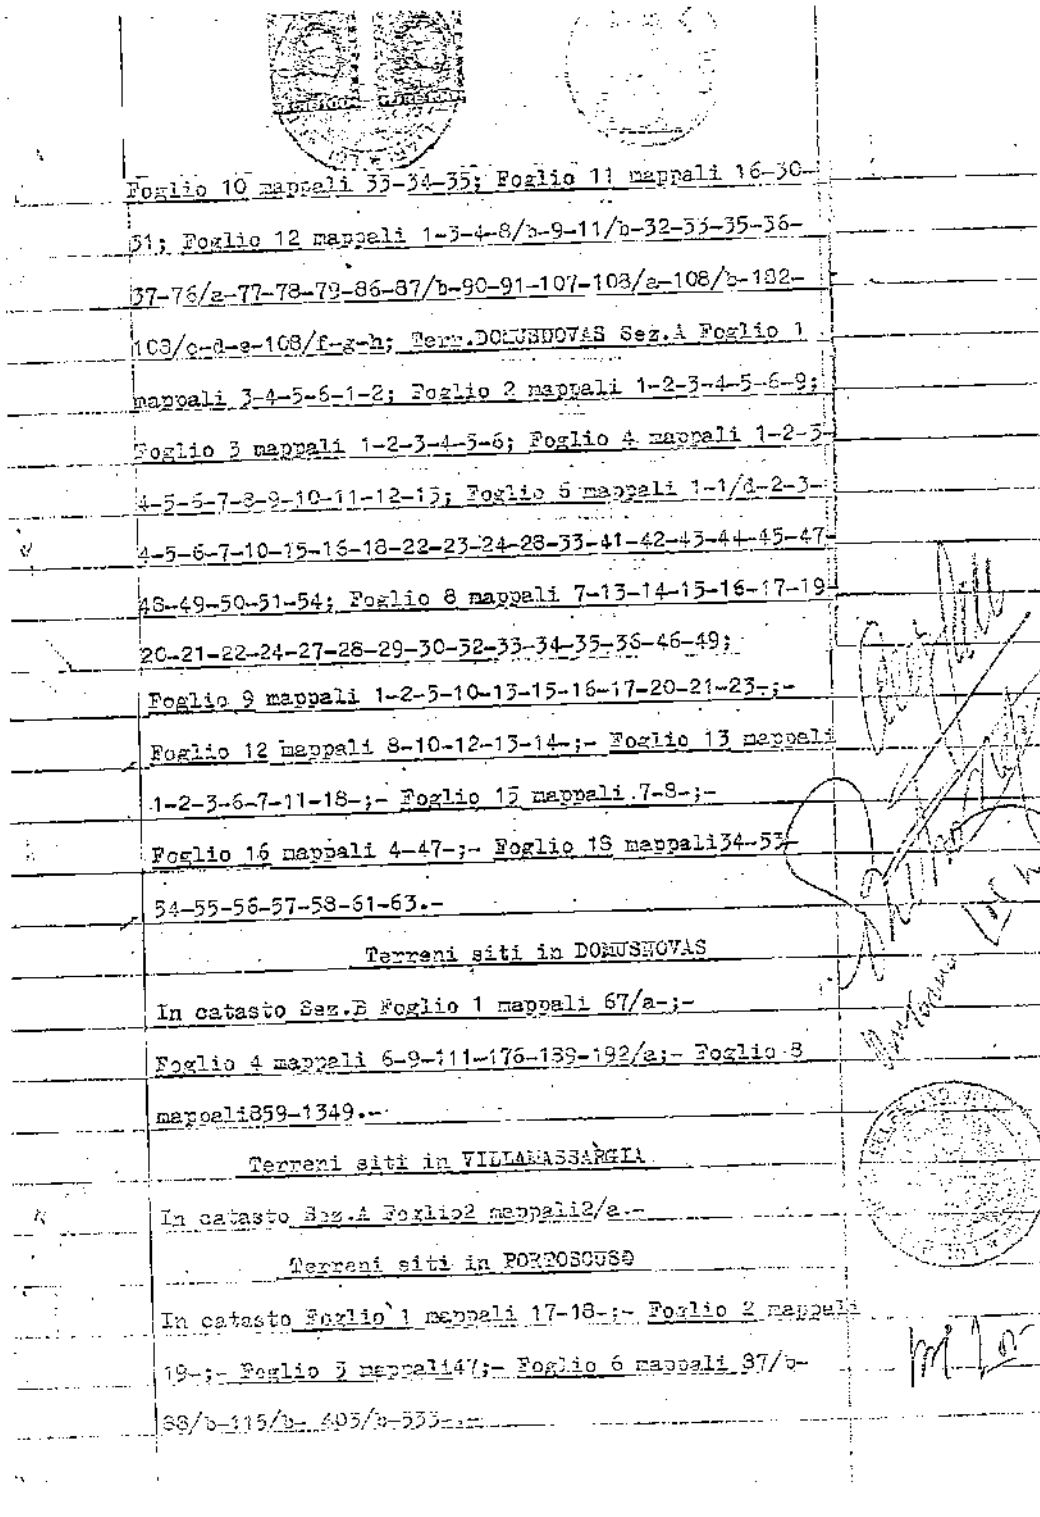 Foglio 10 mappali 33-34-35; Foglio 11 mappali 16-30-
31; Foglio 12 mappali 1-3-4-8/b-9-11/b-32-33-35-36-
37-76/a-77-78-79-86-87/b-90-91-107-108/a-108/b-102-
108/c-d-e-108/f-g-h; Terr.DOMUSNOVAS Sez.A Foglio 1
mappali 3-4-5-6-1-2; Foglio 2 mappali 1-2-3-4-5-6-9;
Foglio 3 mappali 1-2-3-4-5-6; Foglio 4 mappali 1-2-3-
4-5-6-7-8-9-10-11-12-13; Foglio 6 mappali 1-1/d-2-3-
4-5-6-7-10-15-16-18-22-23-24-28-33-41-42-43-44-45-47-
48-49-50-51-54; Foglio 8 mappali 7-13-14-15-16-17-19
20-21-22-24-27-28-29-30-32-33-34-35-36-46-49;
Foglio 9 mappali 1-2-5-10-13-15-16-17-20-21-23-;-
Foglio 12 mappali 8-10-12-13-14-;- Foglio 13 mappali
1-2-3-6-7-11-18-;- Foglio 15 mappali 7-8-;-
Foglio 16 mappali 4-47-;- Foglio 18 mappali34-53-
54-55-56-57-58-61-63.-
Terreni siti in DOMUSNOVAS
In catasto Sez.B Foglio 1 mappali 67/a-;-
Foglio 4 mappali 6-9-111-176-189-192/a;- Foglio 8
mappali859-1349.-
Terreni siti in VILLAMASSARGIA
In catasto Sez.A Foglio2 mappali2/a.-
Terreni siti in PORTOSCUSO
In catasto Foglio 1 mappali 17-18-;- Foglio 2 mappali
19-;- Foglio 5 mappali47;- Foglio 6 mappali 87/b-
88/b-115/b- 403/b-533-.-